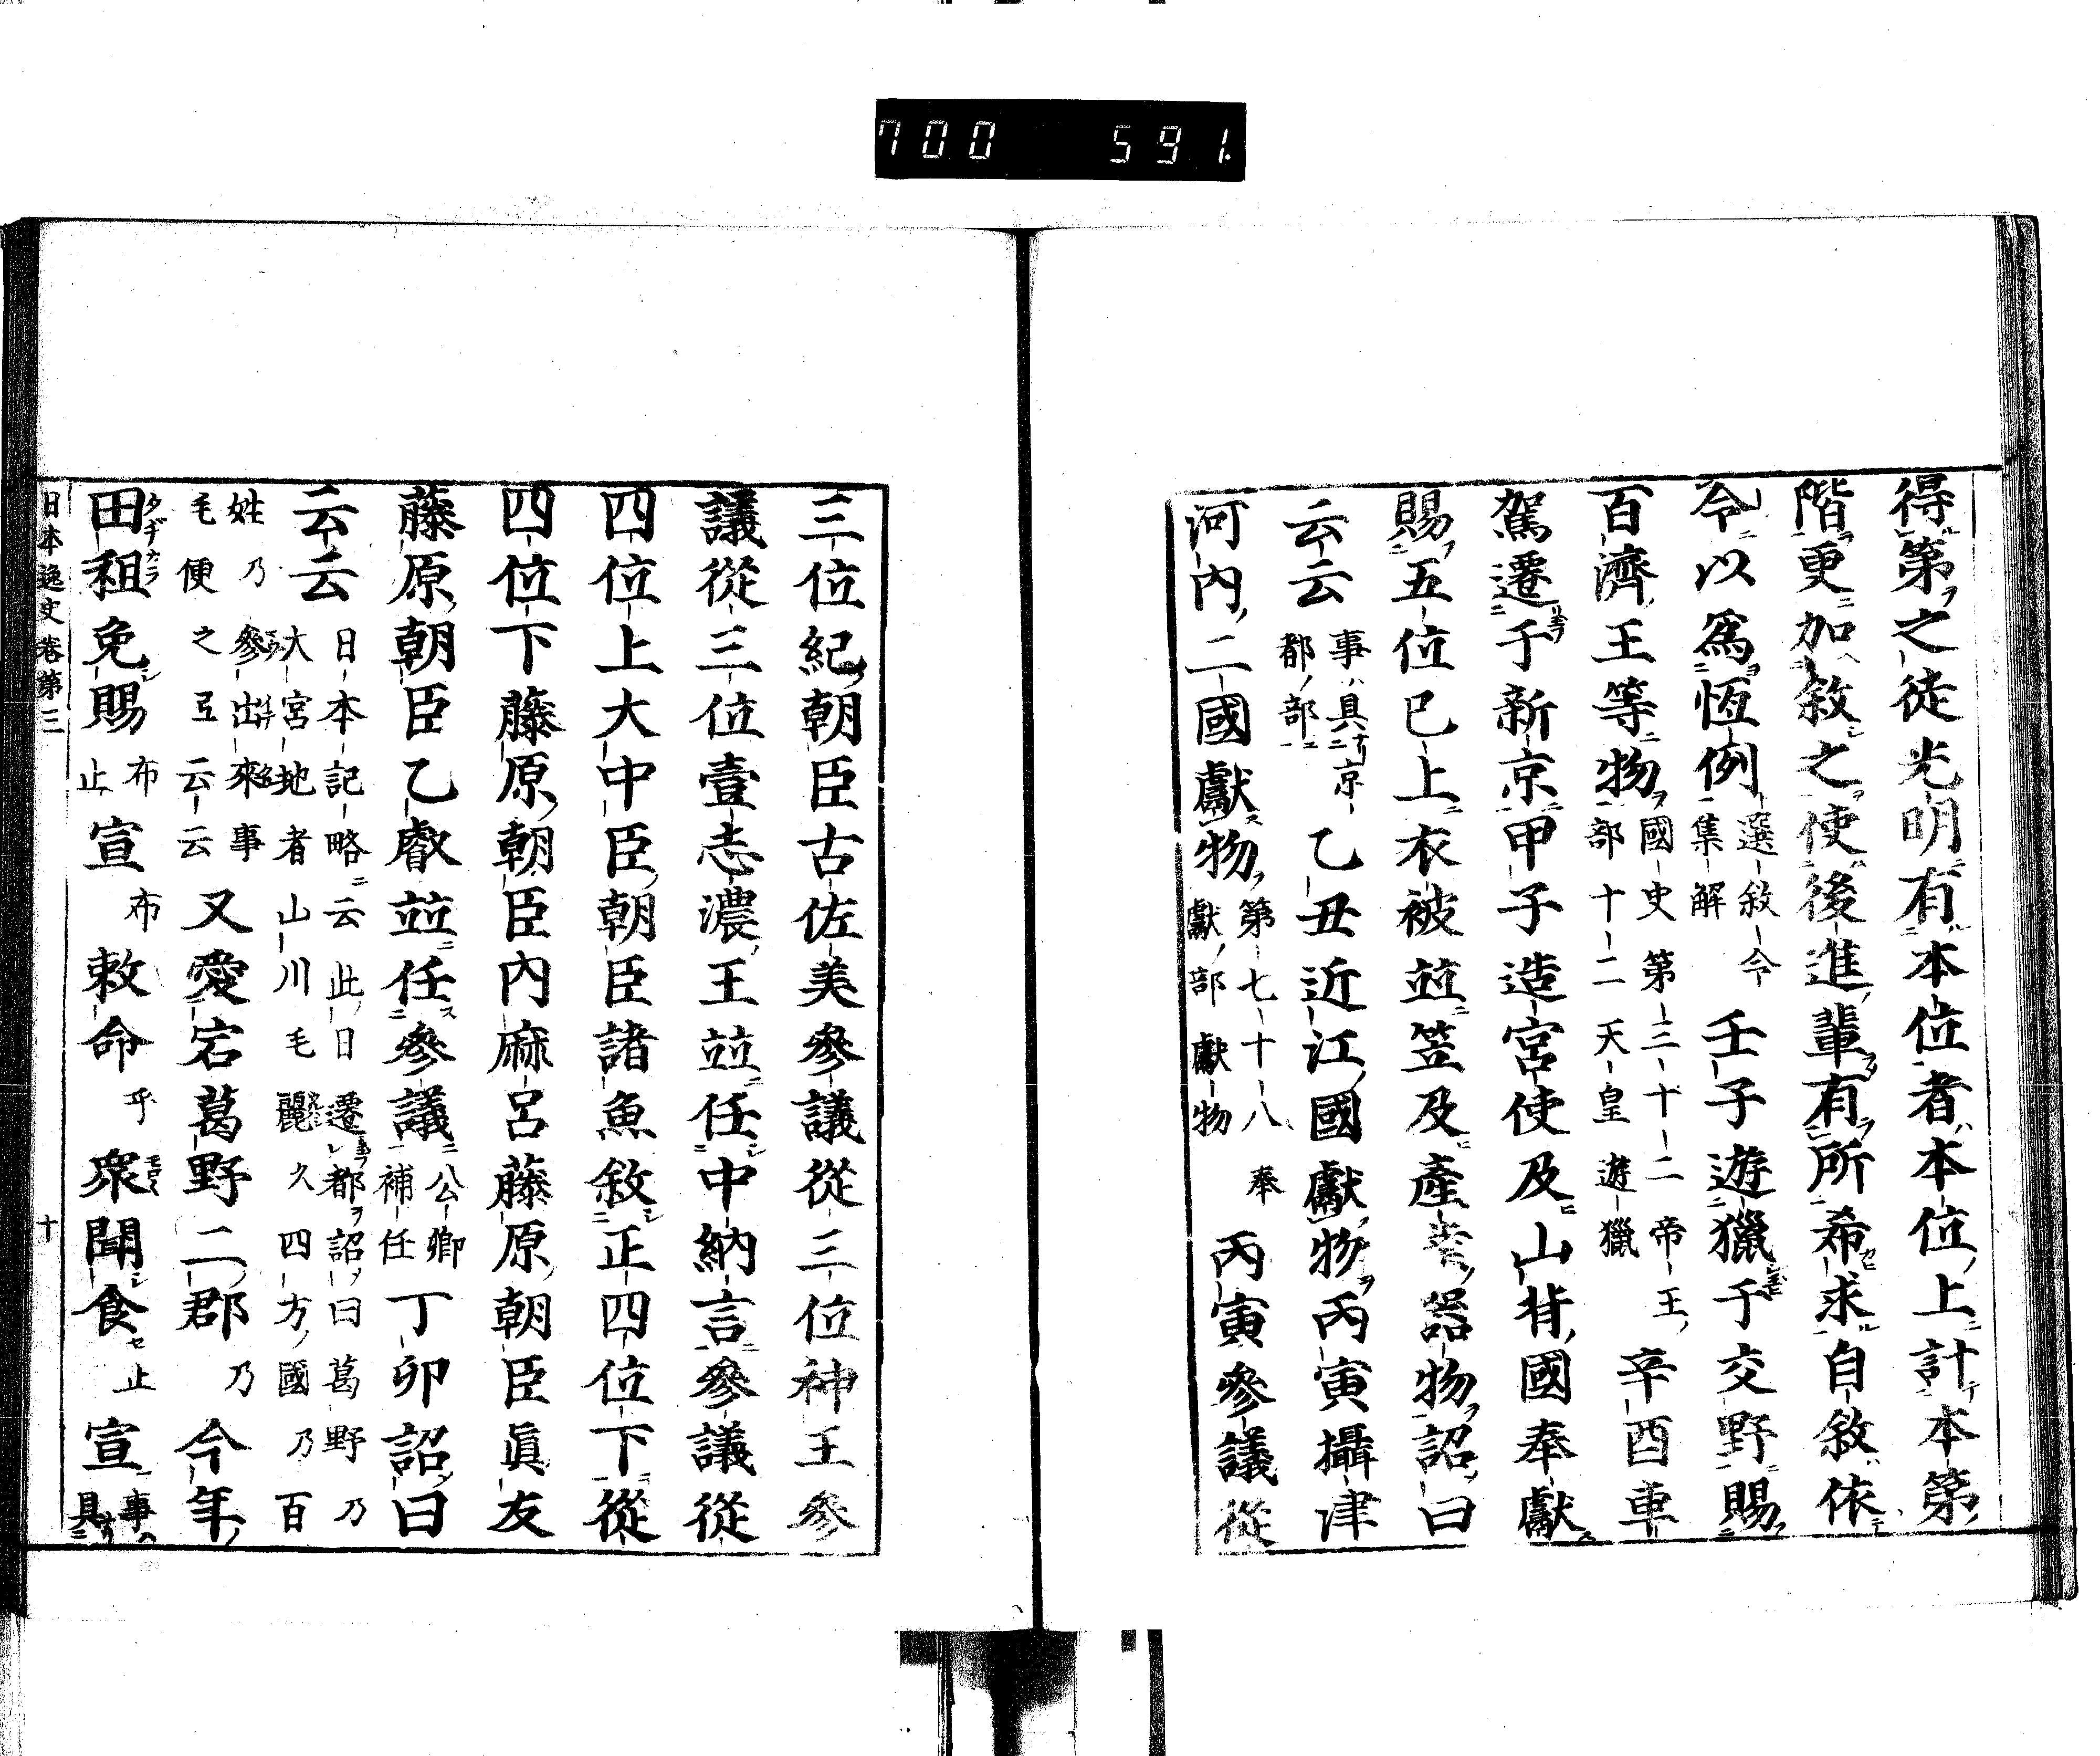 700 591
得第之徒光明有本位者本位上計本第
階更加敘之使後進輩有所希求自敘依
令以爲恆例選敘令集解壬子遊獵于交野賜
百濟王等物國史第三十二帝王部十二天皇遊獵辛酉車
駕遷于新京甲子造宮使及山背國奉獻
賜五位已上衣被並笠及產業器物詔曰
云云事具京都部乙丑近江國獻物丙寅攝津
河內二國獻物第七十八奉獻部獻物丙寅參議從
三位紀朝臣古佐美參議從三位神王參
議從三位壹志濃王並任中納言參議從
四位上大中臣朝臣諸魚敘正四位下從
四位下藤原朝臣內麻呂藤原朝臣眞友
藤原朝臣乙叡並任參議公卿補任丁卯詔曰
云云日本記略云此日遷都詔曰葛野乃大宮地者山川毛麗久四方國乃百
姓乃參出來事毛便之弖云云又愛宕葛野二郡乃今年
田租免賜布止宣布敕命乎衆聞食止宣事具
日本逸史卷第三 十